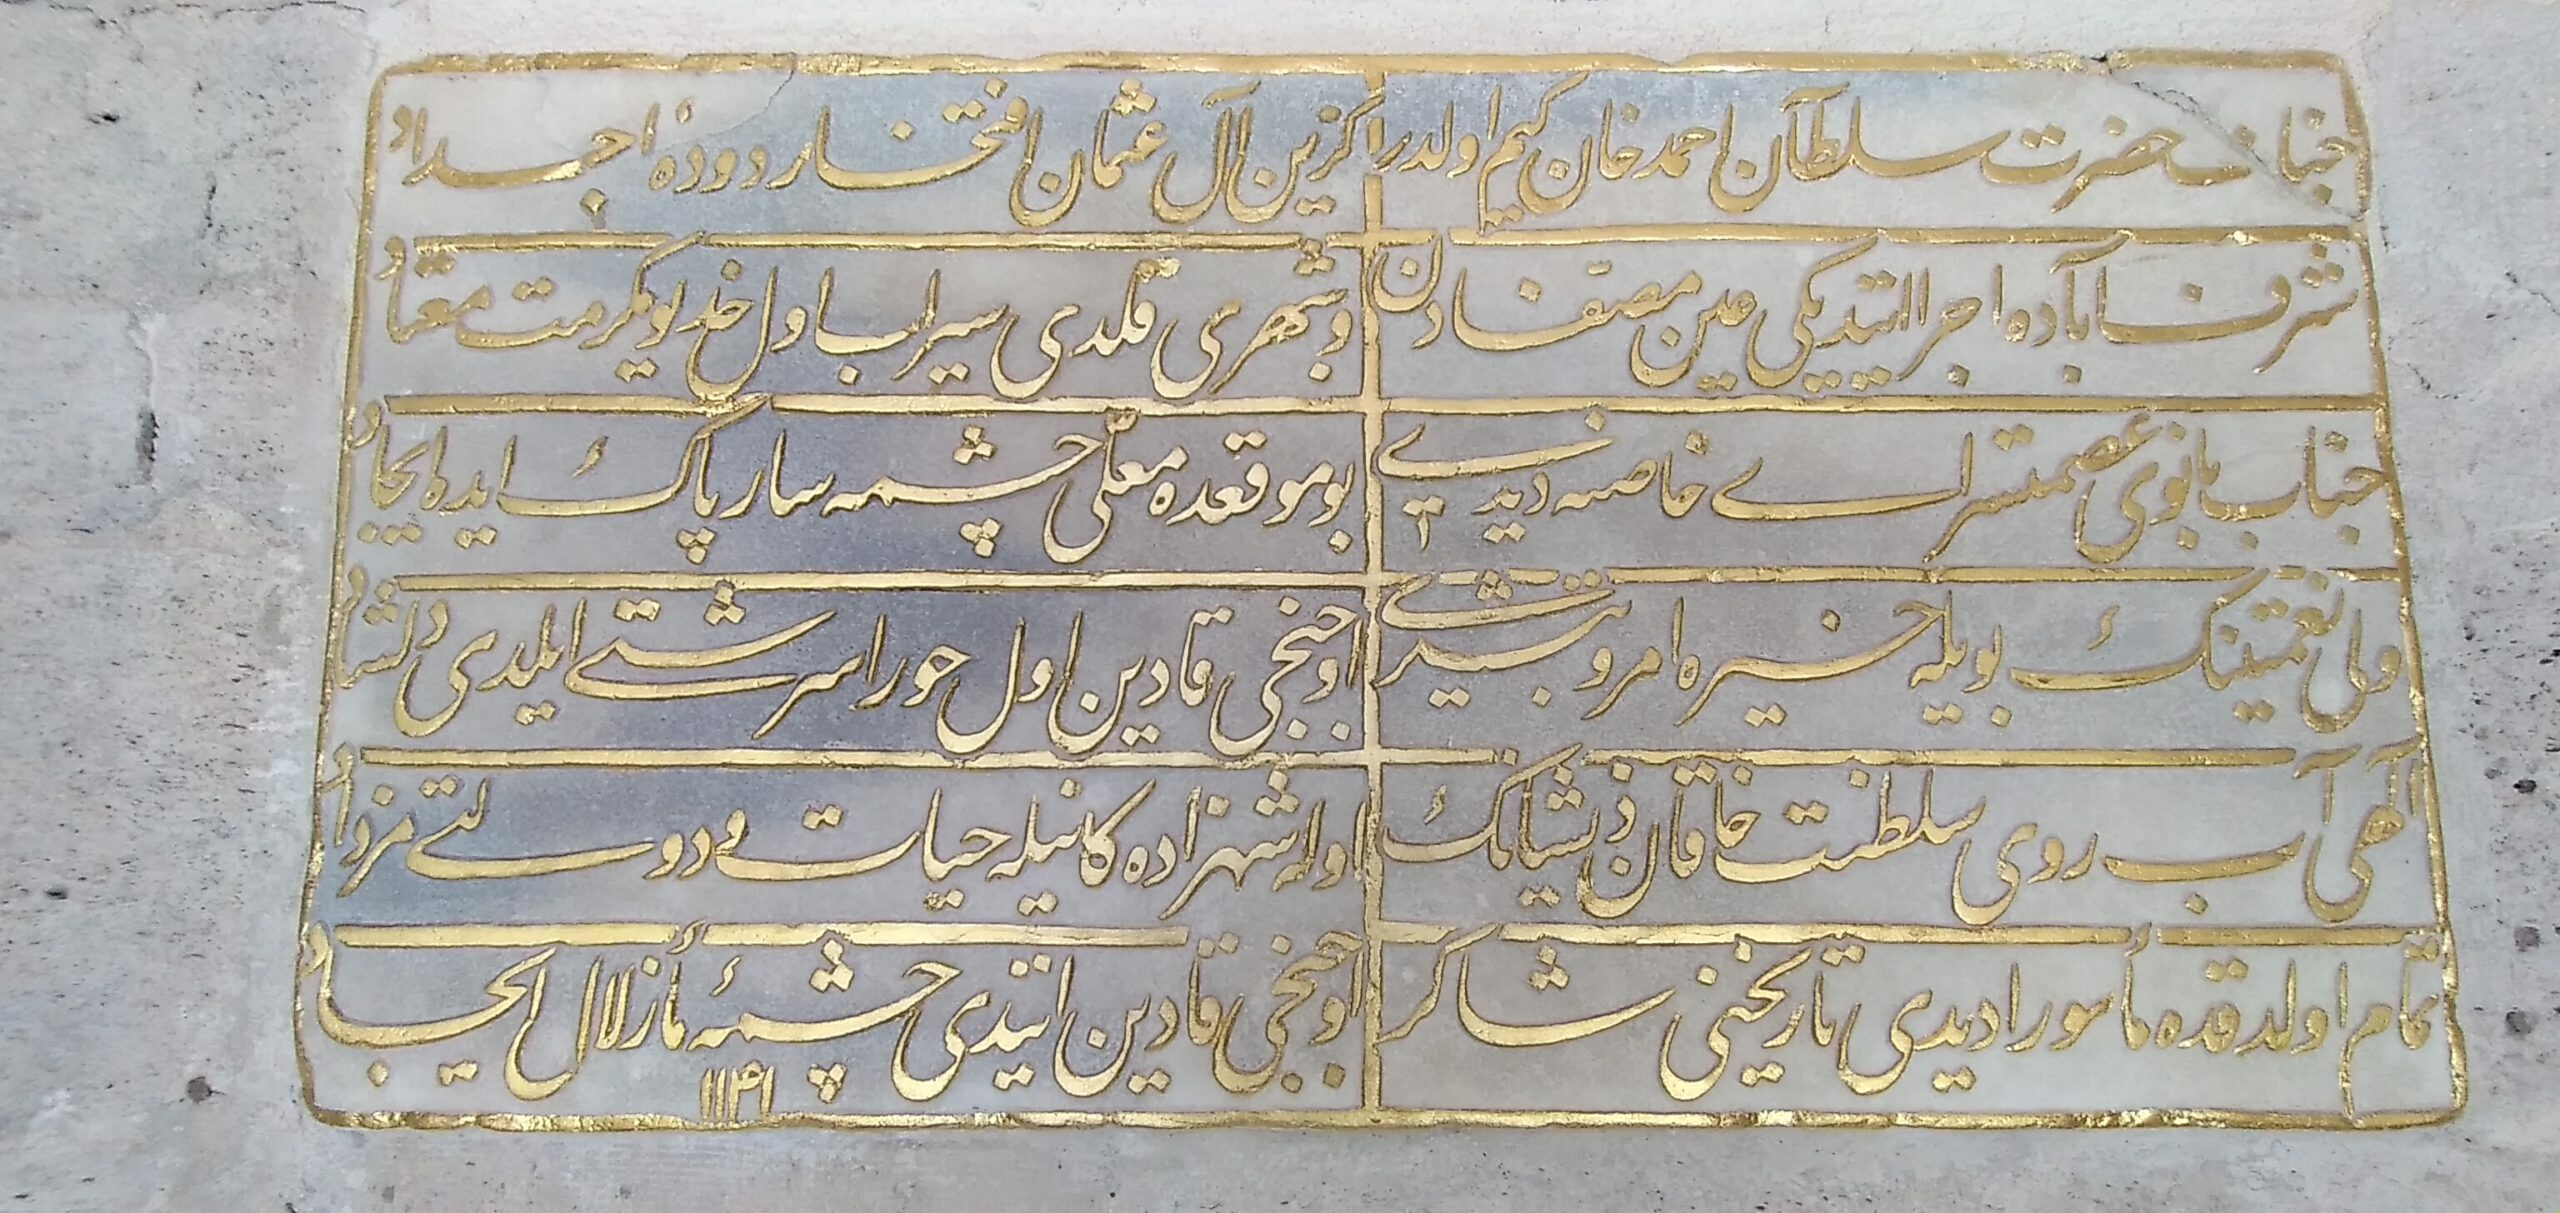 جناب حضرت سلطان احمد خان کیم اولدر
کزین آل عثمان افتخار دودهٔ اجداد
شرف آباده اجرا ایتدیکی عین مصفادن
وشهری قلدی سیراب اول خدیو مکرمت معتاد
جناب بانوی عصمتسرای خاصه دیدی
بو موقعده معلی چشمه سار پاک ایده ایجاد
ولی نعمتینک بویله خیره امر و تبشیری
اوچنجی قادین اول حورا سرشتی ایلدی دلشاد
آلهی آب روی سلطنت خاقان ذیشانک
اوله شهزاده کانیله حیات و دولتی مزداد
تمام اولدقده مأمورا دیدی تاریخنی شاکر
اوچنجی قادین ایتدی چشمهٔ ماء زلال ایجاد
۱۱۴۱